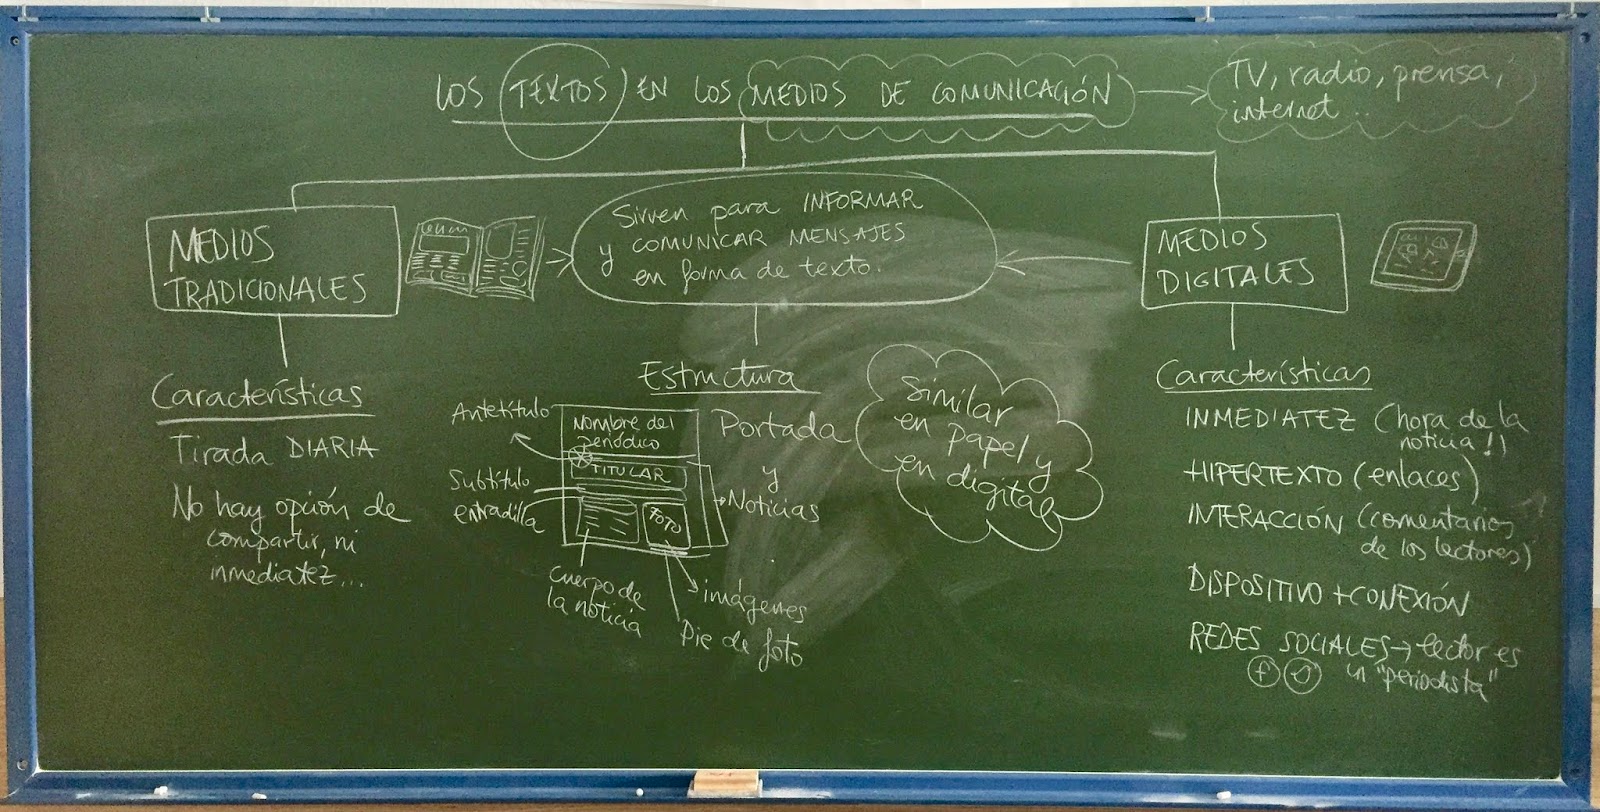 LOS TEXTOS EN LOS MEDIOS DE COMUNICACIÓN
TV, radio, prensa,
internet...
MEDIOS
TRADICIONALES
Sirven para INFORMAR
y COMUNICAR MENSAJES
en forma de texto.
MEDIOS
DIGITALES
Características
Tirada DIARIA
No hay opción de
compartir, ni
inmediatez...
Estructura
Antetítulo
Subtítulo
entradilla
Nombre del
periódico
TITULAR
FOTO
Portada
y
Noticias
cuerpo de
la noticia
imágenes
Pie de foto
Similar
en papel y
en digital
Características
INMEDIATEZ (hora de la
noticia!)
HIPERTEXTO (enlaces)
INTERACCIÓN (comentarios
de los lectores)
DISPOSITIVO + CONEXIÓN
REDES SOCIALES → lector es
un "periodista"
f